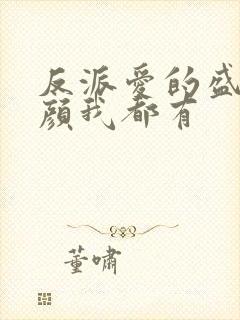 反派爱的盛
颜我都有
董啸